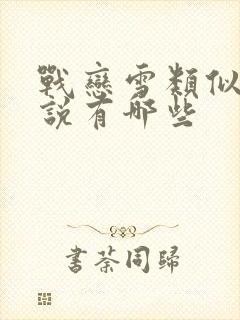 戰戀雪類似
說有哪些
書荼同歸